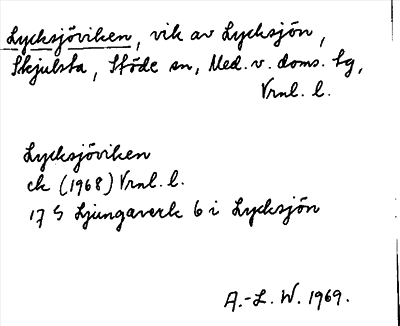 Lycksjöviken, vik av Lycksjön,
Skjulsta, Stöde sn, Med. v. doms. tg,
Vrnl. l.
Lycksjöviken
ek (1968) Vrnl. l.
17 G Ljungaverk 6 i Lycksjön
A.-L. W. 1969.